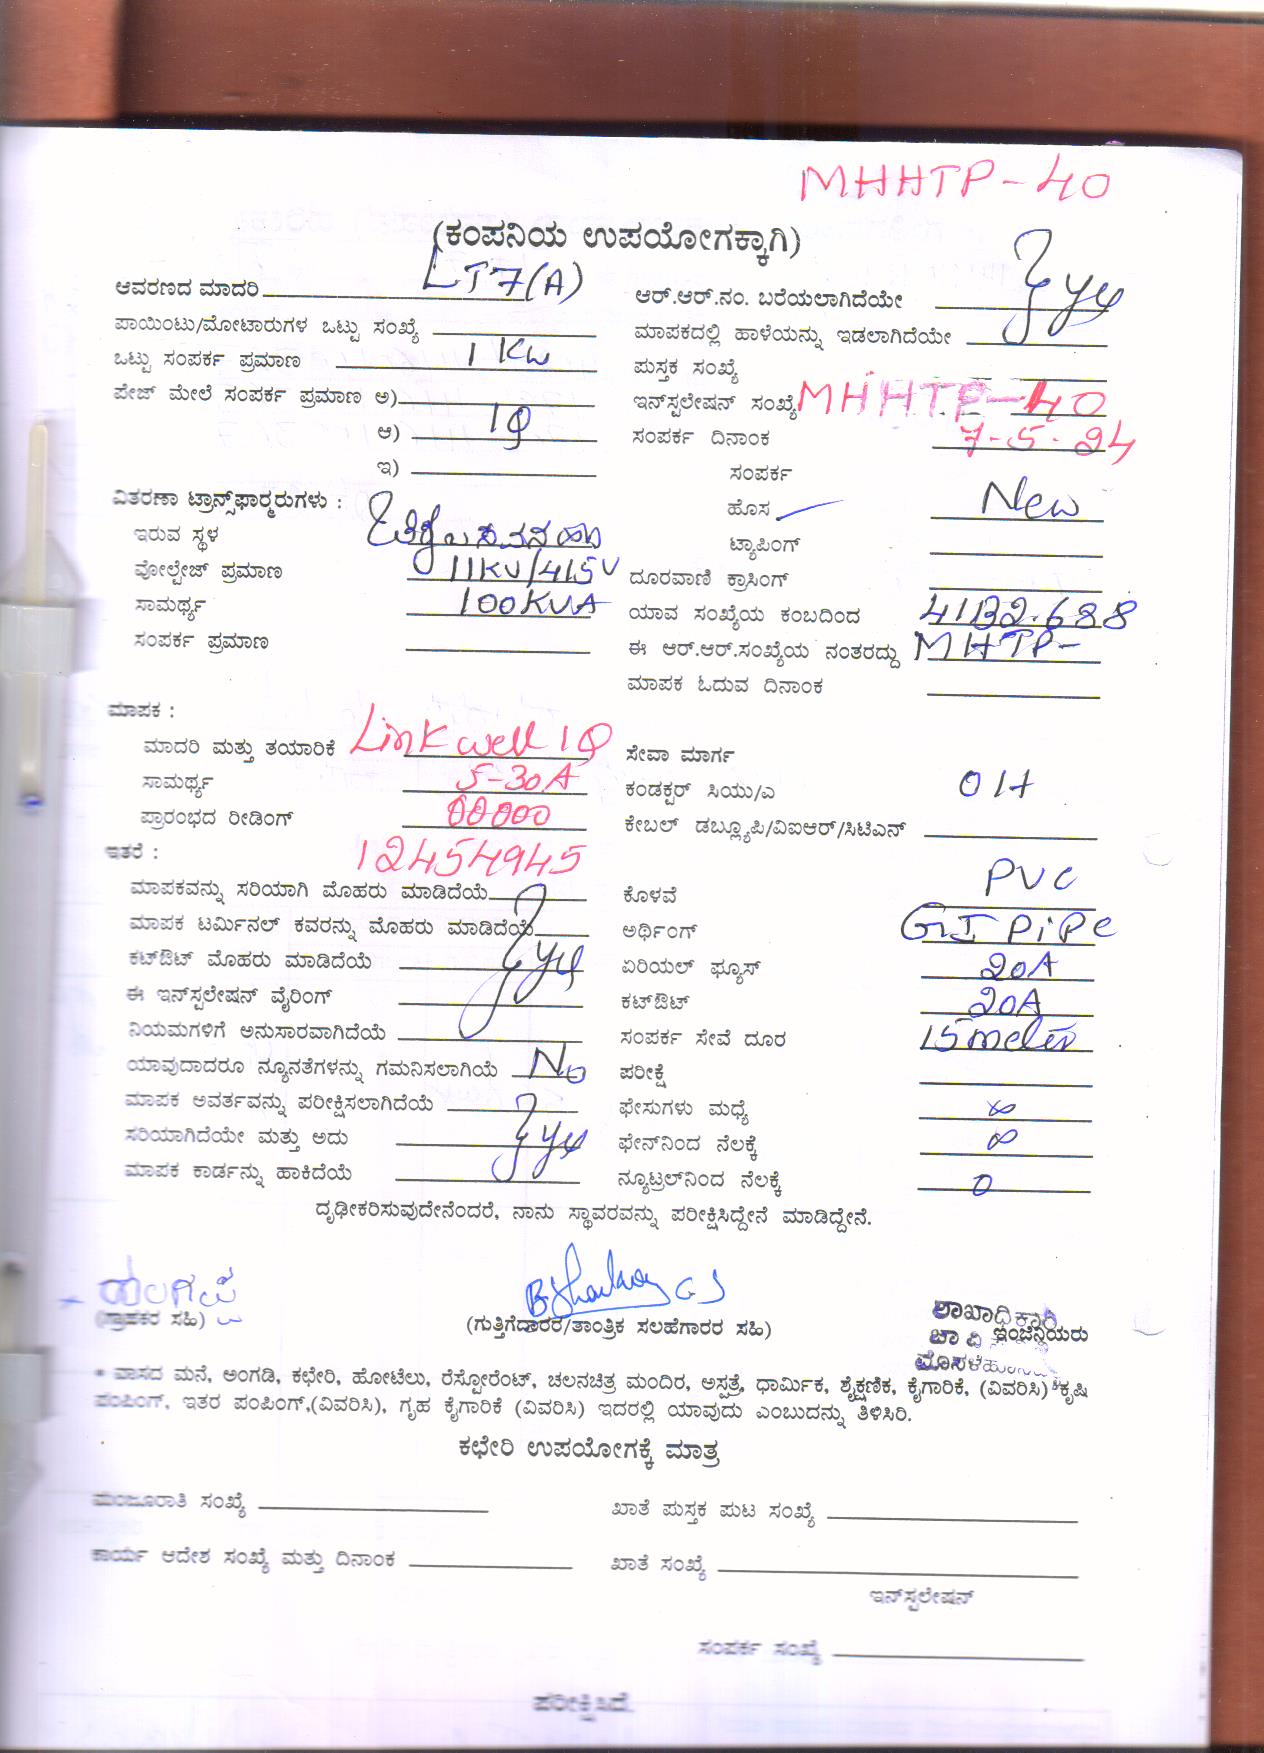 MHHTP-40
(ಕಂಪನಿಯ ಉಪಯೋಗಕ್ಕಾಗಿ)
ಆವರಣದ ಮಾದರಿ LT7(A)
ಆರ್.ಆರ್.ನಂ. ಬರೆಯಲಾಗಿದೆಯೇ
ಪಾಯಿಂಟು/ಮೋಟಾರುಗಳ ಒಟ್ಟು ಸಂಖ್ಯೆ
ಮಾಪಕದಲ್ಲಿ ಹಾಳೆಯನ್ನು ಇಡಲಾಗಿದೆಯೇ
ಒಟ್ಟು ಸಂಪರ್ಕ ಪ್ರಮಾಣ 1 KW
ಪುಸ್ತಕ ಸಂಖ್ಯೆ
ಪೇಜ್ ಮೇಲೆ ಸಂಪರ್ಕ ಪ್ರಮಾಣ ಅ)
ಇನ್‌ಸ್ಪಲೇಷನ್ ಸಂಖ್ಯೆ MHHTP-40
ಆ) 1Φ
ಸಂಪರ್ಕ ದಿನಾಂಕ 7-5-24
ಇ)
ಸಂಪರ್ಕ
ವಿತರಣಾ ಟ್ರಾನ್ಸ್‌ಫಾರ್‍ಮರುಗಳು :
ಹೊಸ New
ಇರುವ ಸ್ಥಳ
ಟ್ಯಾಪಿಂಗ್
ವೋಲ್ಟೇಜ್ ಪ್ರಮಾಣ 11KV/415V
ದೂರವಾಣಿ ಕ್ರಾಸಿಂಗ್
ಸಾಮರ್ಥ್ಯ 100KVA
ಯಾವ ಸಂಖ್ಯೆಯ ಕಂಬದಿಂದ
ಸಂಪರ್ಕ ಪ್ರಮಾಣ
ಈ ಆರ್.ಆರ್.ಸಂಖ್ಯೆಯ ನಂತರದ್ದು MHTP-
ಮಾಪಕ ಓದುವ ದಿನಾಂಕ
ಮಾಪಕ :
ಮಾದರಿ ಮತ್ತು ತಯಾರಿಕೆ Linkwell 1Φ
ಸೇವಾ ಮಾರ್ಗ
ಸಾಮರ್ಥ್ಯ 5-30A
ಕಂಡಕ್ಟರ್ ಸಿಯು/ಎ OH
ಪ್ರಾರಂಭದ ರೀಡಿಂಗ್ 00000
ಕೇಬಲ್ ಡಬ್ಲ್ಯೂಪಿ/ವಿಐಆರ್/ಸಿಟಿಎನ್
ಇತರೆ : 12454945
ಮಾಪಕವನ್ನು ಸರಿಯಾಗಿ ಮೊಹರು ಮಾಡಿದೆಯೆ
ಕೊಳವೆ PVC
ಮಾಪಕ ಟರ್ಮಿನಲ್ ಕವರನ್ನು ಮೊಹರು ಮಾಡಿದೆಯೆ
ಅರ್ಥಿಂಗ್ GI PiPe
ಕಟ್‌ಔಟ್ ಮೊಹರು ಮಾಡಿದೆಯೆ
ಏರಿಯಲ್ ಫ್ಯೂಸ್ 20A
ಈ ಇನ್‌ಸ್ಪಲೇಷನ್ ವೈರಿಂಗ್
ಕಟ್‌ಔಟ್ 20A
ನಿಯಮಗಳಿಗೆ ಅನುಸಾರವಾಗಿದೆಯೆ
ಸಂಪರ್ಕ ಸೇವೆ ದೂರ 15 meter
ಯಾವುದಾದರೂ ನ್ಯೂನತೆಗಳನ್ನು ಗಮನಿಸಲಾಗಿಯೆ No
ಪರೀಕ್ಷೆ
ಮಾಪಕ ಅವರ್ತವನ್ನು ಪರೀಕ್ಷಿಸಲಾಗಿದೆಯೆ
ಫೇಸುಗಳು ಮಧ್ಯೆ ∞
ಸರಿಯಾಗಿದೆಯೇ ಮತ್ತು ಅದು
ಫೇನ್‌ನಿಂದ ನೆಲಕ್ಕೆ ∞
ಮಾಪಕ ಕಾರ್ಡನ್ನು ಹಾಕಿದೆಯೆ
ನ್ಯೂಟ್ರಲ್‌ನಿಂದ ನೆಲಕ್ಕೆ 0
ದೃಢೀಕರಿಸುವುದೇನೆಂದರೆ, ನಾನು ಸ್ಥಾವರವನ್ನು ಪರೀಕ್ಷಿಸಿದ್ದೇನೆ ಮಾಡಿದ್ದೇನೆ.
(ಗ್ರಾಹಕರ ಸಹಿ)
(ಗುತ್ತಿಗೆದಾರರ/ತಾಂತ್ರಿಕ ಸಲಹೆಗಾರರ ಸಹಿ)
ಶಾಖಾಧಿಕಾರಿ
ಇಂಜಿನಿಯರು
* ವಾಸದ ಮನೆ, ಅಂಗಡಿ, ಕಛೇರಿ, ಹೋಟೆಲು, ರೆಸ್ಟೋರೆಂಟ್, ಚಲನಚಿತ್ರ ಮಂದಿರ, ಅಸ್ಪತ್ರೆ, ಧಾರ್ಮಿಕ, ಶೈಕ್ಷಣಿಕ, ಕೈಗಾರಿಕೆ, (ವಿವರಿಸಿ) ಕೃಷಿ
ಪಂಪಿಂಗ್, ಇತರ ಪಂಪಿಂಗ್,(ವಿವರಿಸಿ), ಗೃಹ ಕೈಗಾರಿಕೆ (ವಿವರಿಸಿ) ಇದರಲ್ಲಿ ಯಾವುದು ಎಂಬುದನ್ನು ತಿಳಿಸಿರಿ.
ಕಛೇರಿ ಉಪಯೋಗಕ್ಕೆ ಮಾತ್ರ
ಮಂಜೂರಾತಿ ಸಂಖ್ಯೆ
ಖಾತೆ ಪುಸ್ತಕ ಪುಟ ಸಂಖ್ಯೆ
ಕಾರ್ಯ ಆದೇಶ ಸಂಖ್ಯೆ ಮತ್ತು ದಿನಾಂಕ
ಖಾತೆ ಸಂಖ್ಯೆ
ಇನ್‌ಸ್ಪಲೇಷನ್
ಸಂಪರ್ಕ ಸಂಖ್ಯೆ
ಪರೀಕ್ಷಿಸಿದೆ.